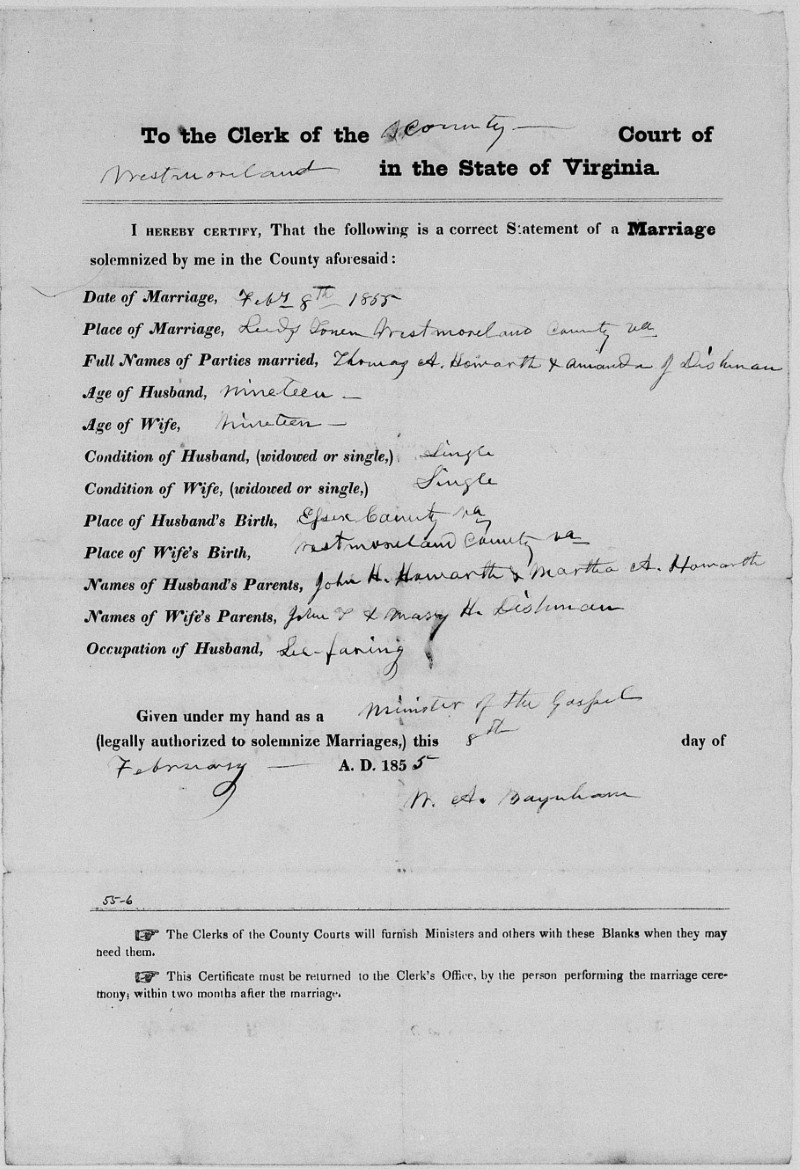 To the Clerk of the County Court of
Westmoreland in the State of Virginia.
I HEREBY CERTIFY, That the following is a correct Statement of a Marriage
solemnized by me in the County aforesaid:
Date of Marriage, Feby 8th 1855
Place of Marriage, Leeds Town Westmoreland County Va
Full Names of Parties married, Thomas A. Howarth & Amanda J Dishman
Age of Husband, Nineteen
Age of Wife, Nineteen
Condition of Husband, (widowed or single,) Single
Condition of Wife, (widowed or single,) Single
Place of Husband's Birth, Essex County Va
Place of Wife's Birth, Westmoreland County Va
Names of Husband's Parents, John H. Howarth & Martha A. Howarth
Names of Wife's Parents, John T & Mary H. Dishman
Occupation of Husband, Sea-faring
Given under my hand as a Minister of the Gospel
(legally authorized to solemnize Marriages,) this 8th day of
February A. D. 1855
W. A. Baynham
55-6
☞ The Clerks of the County Courts will furnish Ministers and others with these Blanks when they may
need them.
☞ This Certificate must be returned to the Clerk's Office, by the person performing the marriage cere-
mony, within two months after the marriage.